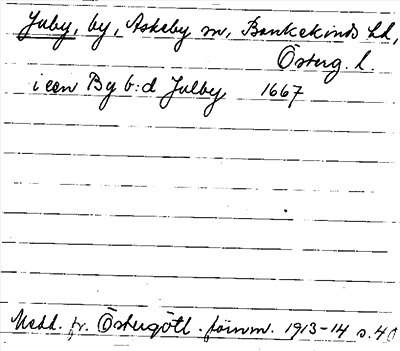 Juby, by, Askeby sn, Bankekinds hd,
Österg. l.
i een By b:d Julby 1667
Medd. fr. Östergötl. fornm. 1913-14 s. 40